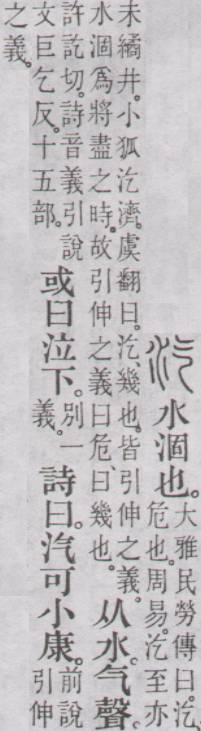 汽 水涸也。大雅民勞傳曰。汔、
危也。周易。汔至亦
未繘井。小狐汔濟。虞翻曰。汔、幾也。皆引伸之義。
水涸爲將盡之時。故引伸之義曰危、曰幾也。
从水。气聲。
許訖切。詩音義引說
文巨乞反。十五部。
或曰泣下。
別一
義。
詩曰。汽可小康。
前說
引伸
之義。